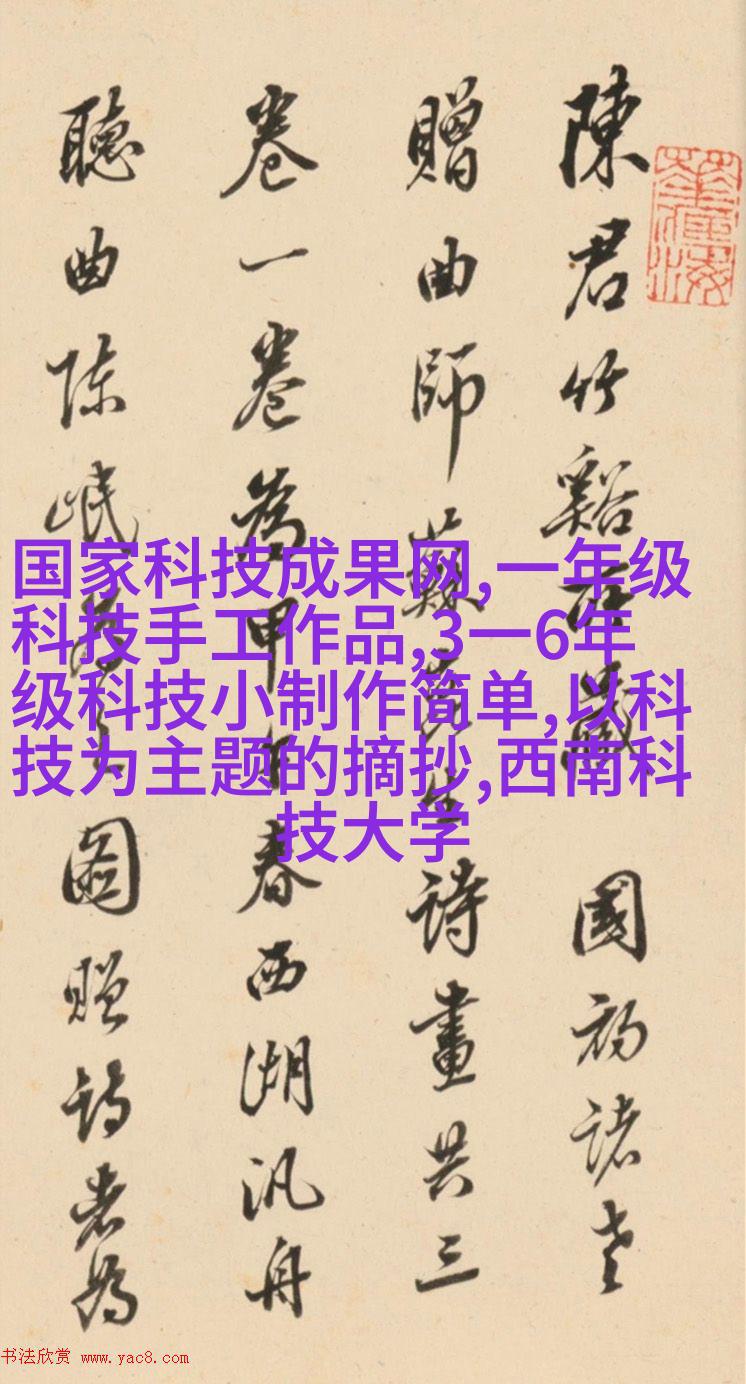 陳君竹谿所藏國初諸老
贈曲師蘇崑生詩畫共三
卷一卷為甲春西湖汎舟
聽曲陈岷為之圖贈詩者為
国家科技成果网,一年级
科技手工作品,3一6年
级科技小制作简单,以科
技为主题的摘抄,西南科
技大学
书法欣赏 www.yac8.com